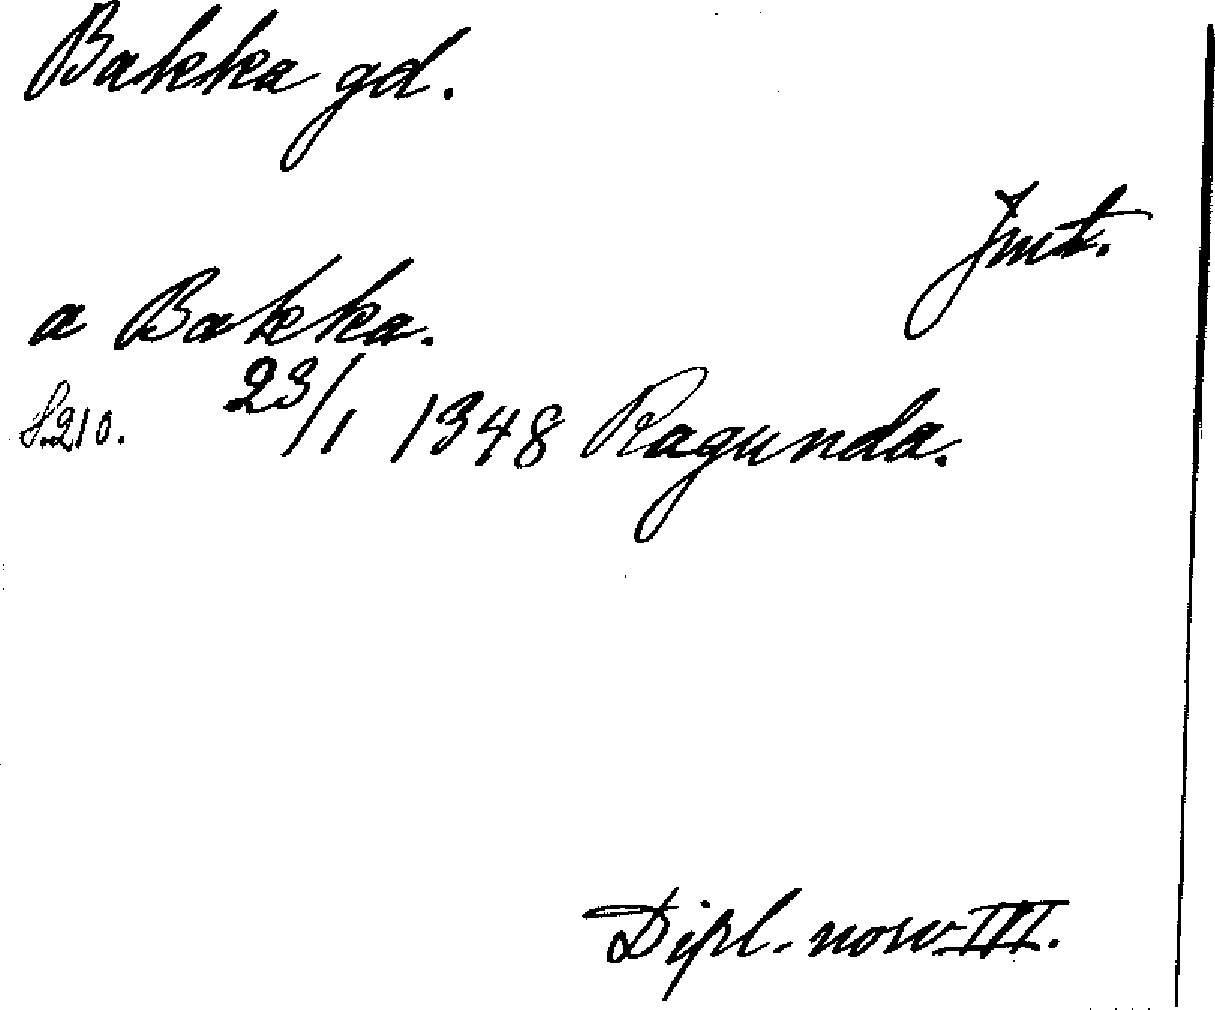 Bakka gd.
Jmt.
a Bakka.
S.210. 23/1 1348 Ragunda.
Dipl. norv. III.